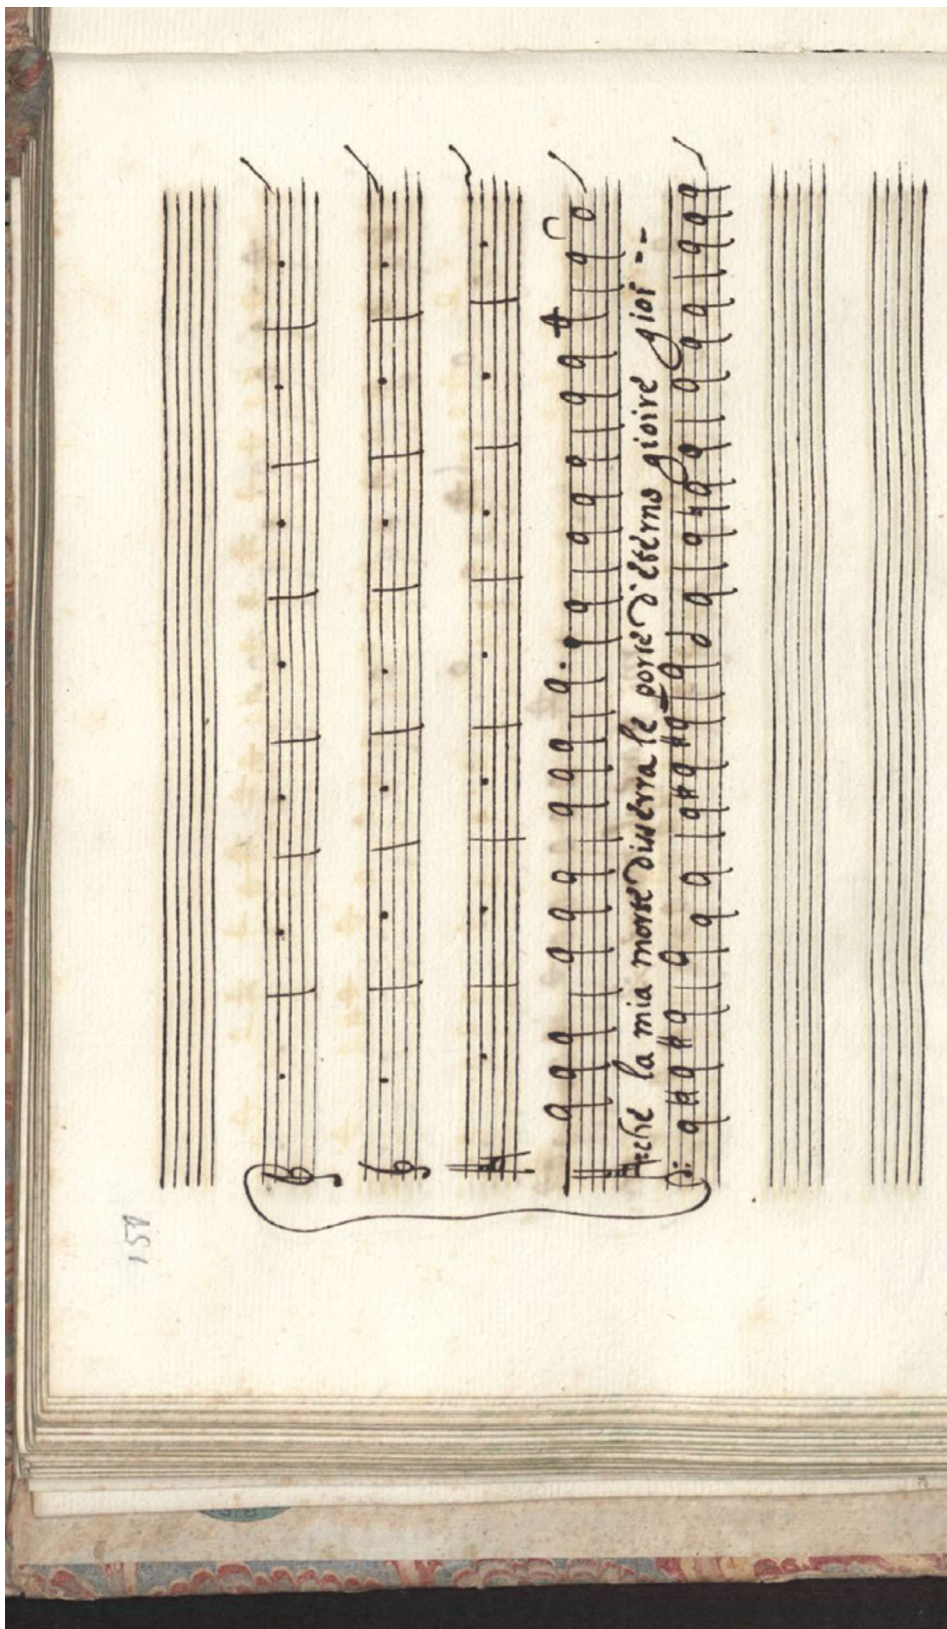 151
che la mia morte disserra le porte d'eterno gioire gioi --